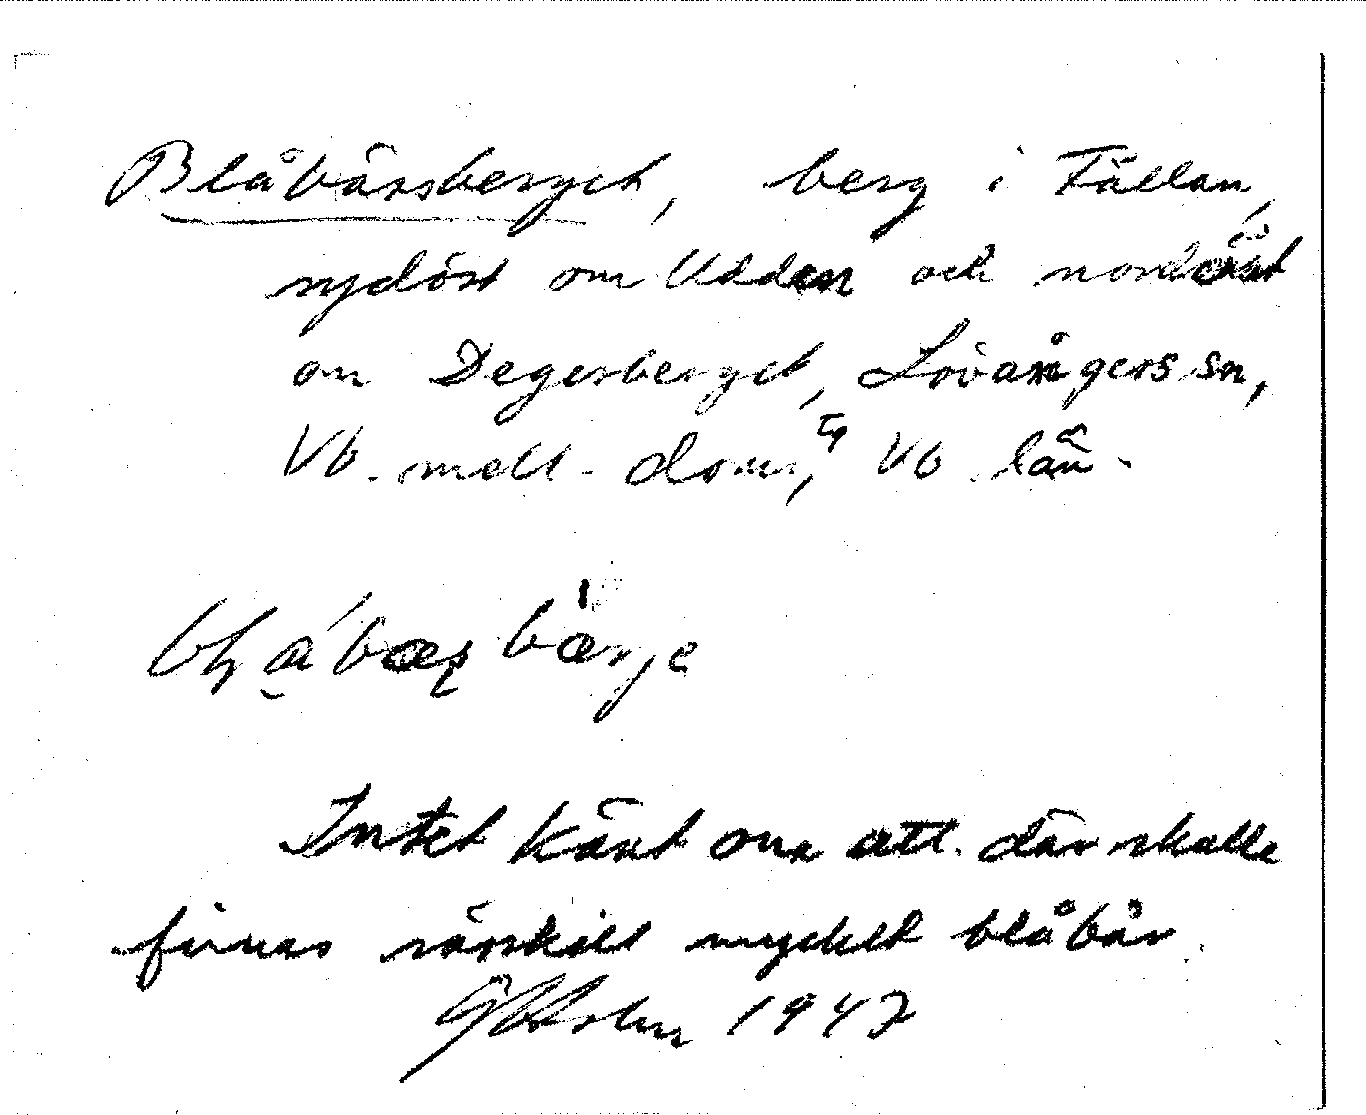 Blåbärsberget, berg i Fällan,
sydöst om Udden och nordöst
om Degerberget, Lövångers sn,
Vb. mell. doms, Vb. län.
Intet känt om att där skulle
finnas särskilt mycket blåbär.
Holm 1947